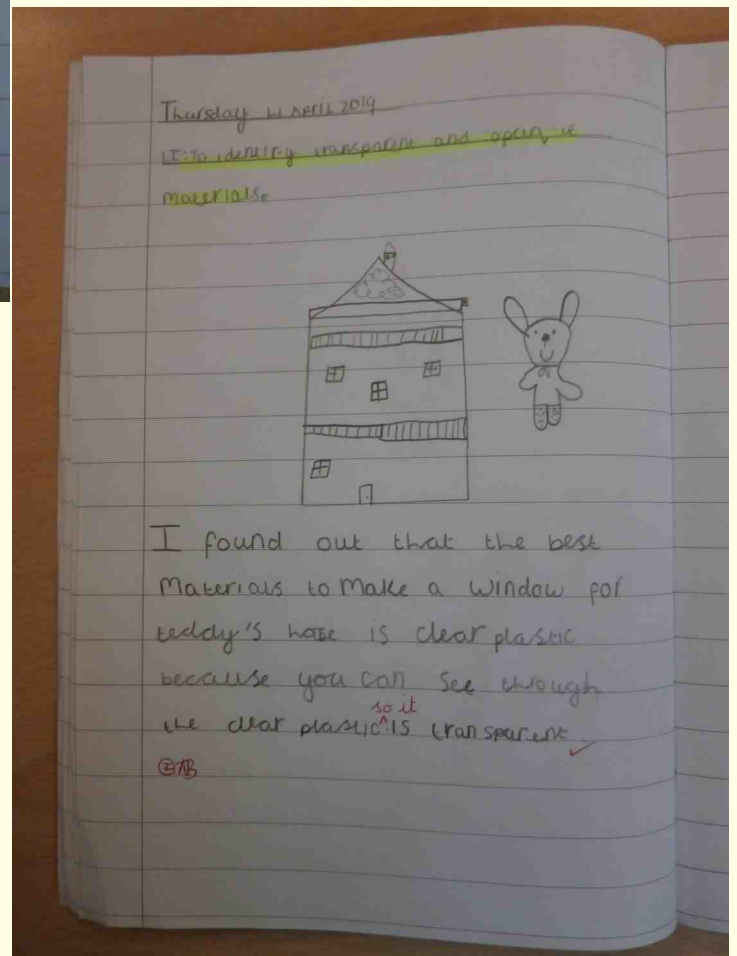 Thursday 4 April 2019
LI: To identify transparent and
materials.
I found out that the best
Materials to make a window for
teddy's is clear plastic
because you can see through
so it
the clear plastic ^ is transparent ✓